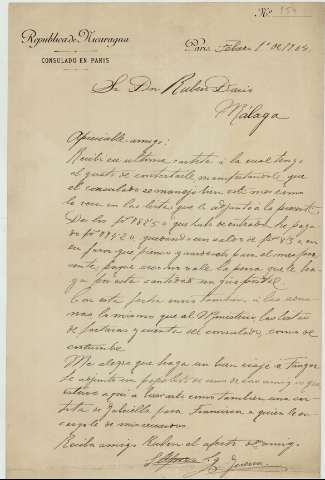 República de Nicaragua
CONSULADO EN PARIS
Nº 354
Paris, Febro 1º de 1904
Sr. Don Ruben Dario
Málaga
Apreciable amigo:
Recibí su última cartita a la cual tengo
el gusto de contestarle manifestándole que
el consulado se manejó bien este mes como
lo verá en las listas que le adjunto a la presente.
De los
que hubo de entradas he pagado
quedando un valor de
su favor que pienso guardarle para el mes presente,
por esta cantidad
Con esta fecha
lo mismo que al Ministerio las listas
de facturas y cuenta del consulado, como de
costumbre.
Me alegra que haga un buen viaje a Tanger
le adjunto un papelito de uno de sus amigos que
estuvo aquí a buscarle como también una cartita
de Gabriella para Francisca a quien le encargo
dé mis recuerdos.
Reciba amigo Ruben el afecto de su amigo.